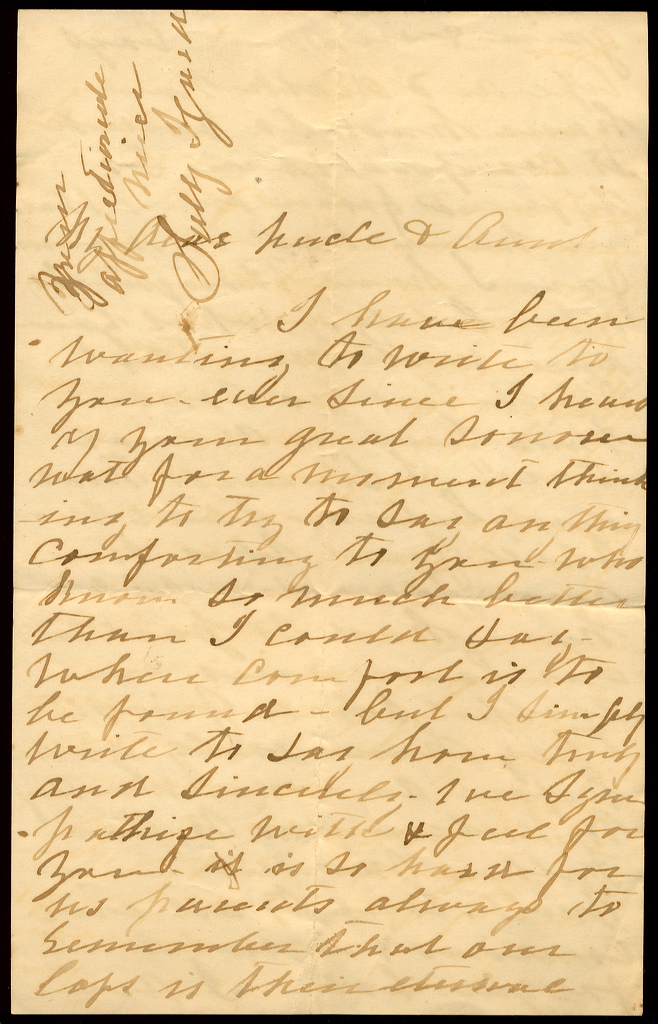 My dear uncle & Aunt
I have been
wanting to write to
you - ever since I heard
of your great sorrow
not for a moment think
-ing to try to say anything
comforting to you - who
know so much better
than I could say -
where comfort is to
be found - but I simply
write to say how truly
and sincerely - we sym
pathize with & feel for
you - it is so hard for
us parents always to
remember that our
loss is their eternal
From
affectionate
niece
Sally